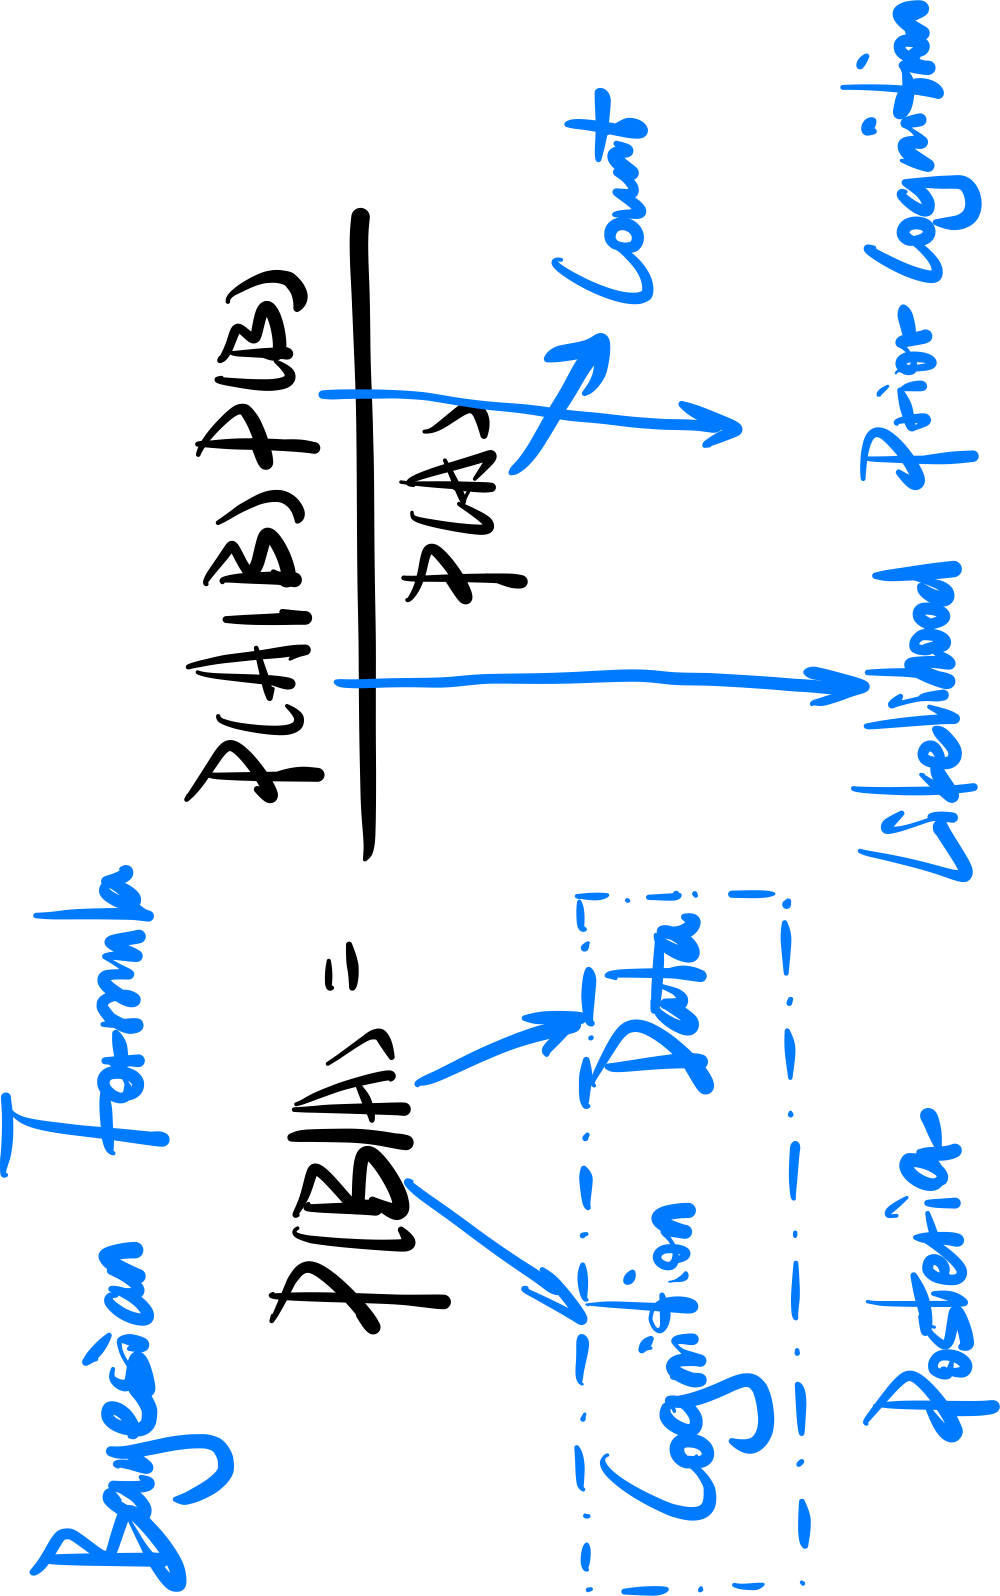 Bayesian Formula
P(B|A) = P(A|B) P(B)
P(A)
Cognition Data
Count
Posterior Likelihood Prior Cognition